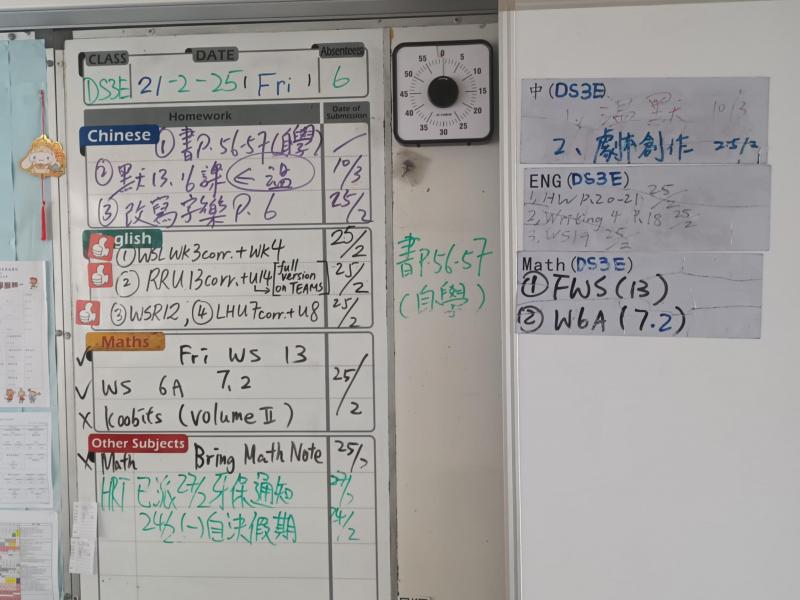 CLASS DATE Absentees
DS3E 21-2-25 Fri 6
Homework Date of Submission
Chinese ① 書P.56-57(自學)
② 默13.16課 ← 溫 10/3
③ 改寫字樂P.6 25/2
glish ① WSL WK3corr.+WK4 25/2
② RRU13corr.+U14 full version on TEAMS 25/2
③ WSR12, ④ LHU7corr.+U8 25/2
Maths
✓ Fri WS 13
✓ WS 6A 7.2 25/2
X koobits (Volume II)
Other Subjects
X Math Bring Math Note 25/2
HRT 已派27/2牙保通知 27/2
24/2(一)自決假期 24/2
書P.56-57
(自學)
0 5 10 15 20 25 30 35 40 45 50 55
中(DS3E)
1. 溫 默 10/3
2、劇本創作 25/2
ENG (DS3E)
1, HW P.20-21 25/2
2, Writing 4 P.18 25/2
3. WS19 25/2
Math (DS3E)
① FWS (13)
② W6A (7.2)